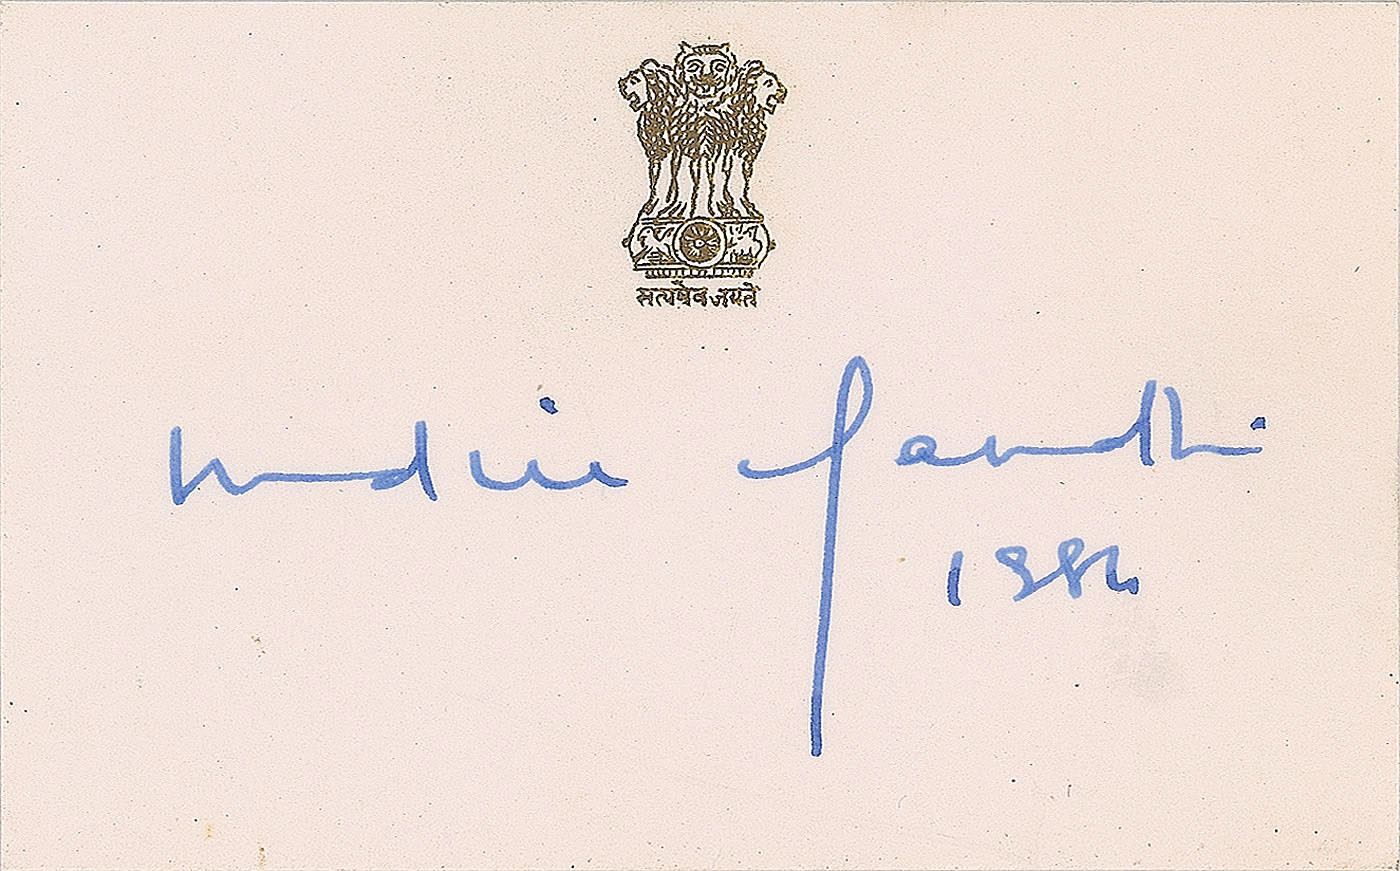 सत्यमेव जयते
Indira Gandhi
1984